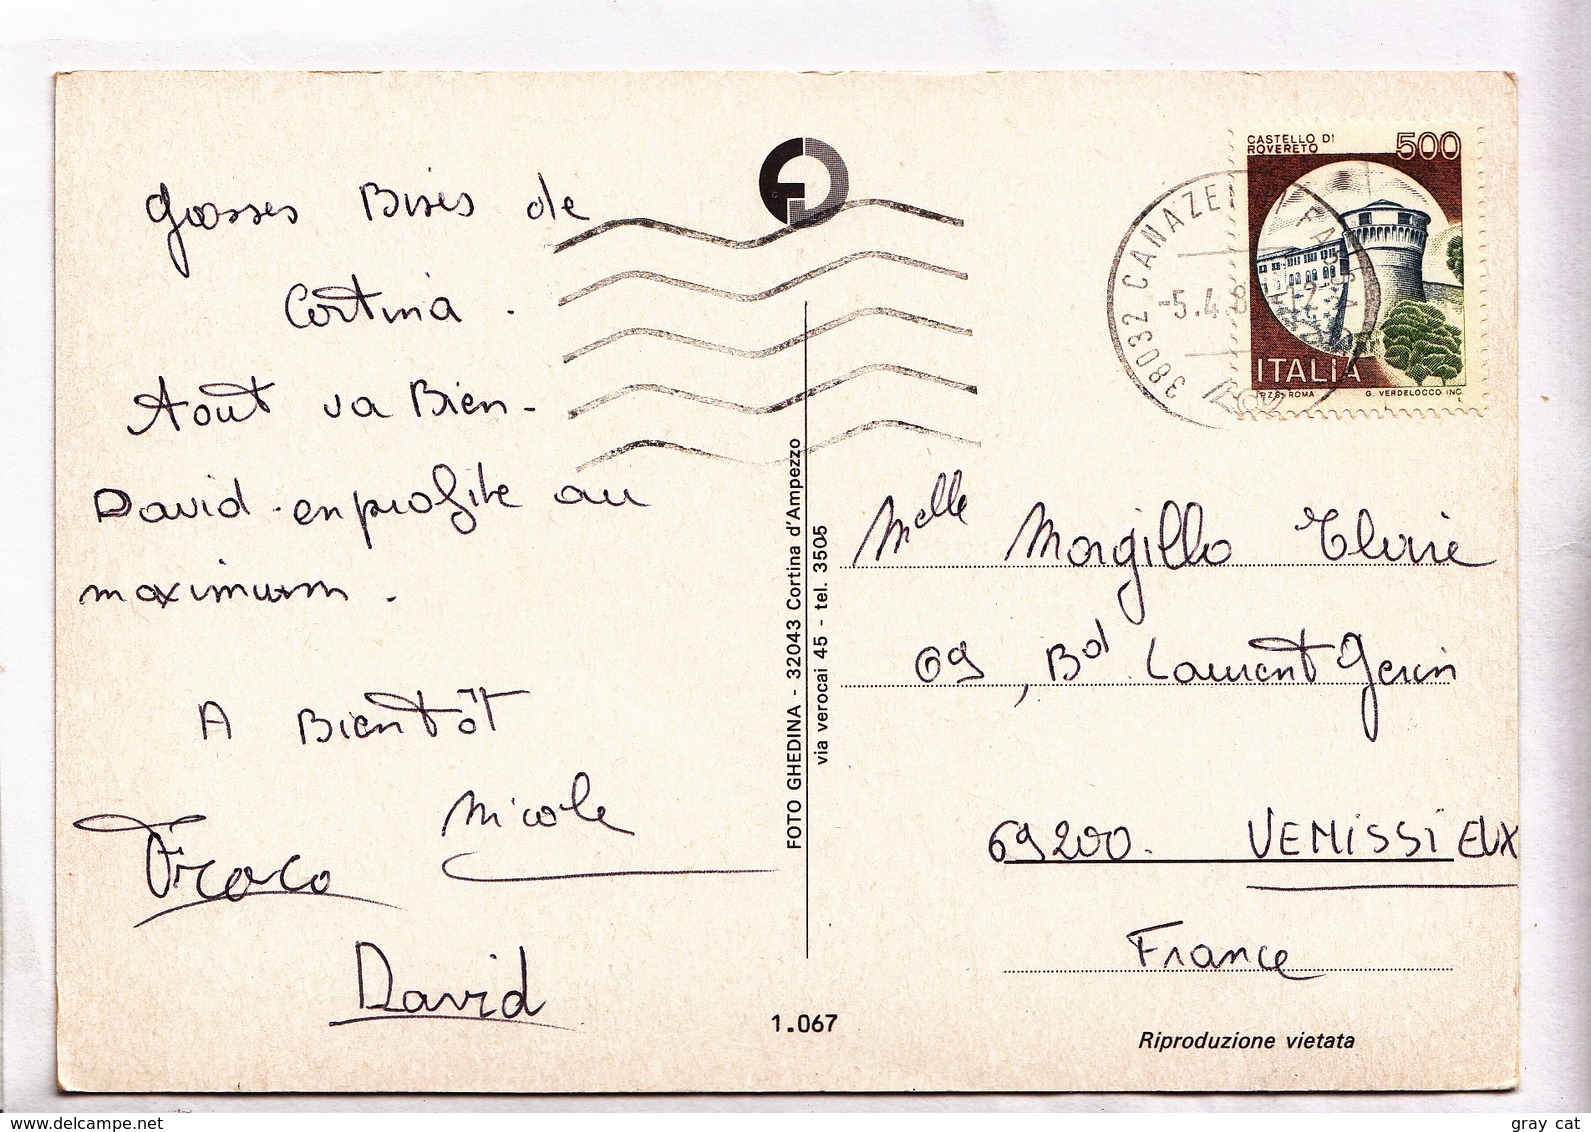 Grosses Bises de
Cortina.
Tout va Bien-
David en profite au
maximum.
A Bientôt
Nicole
David
FOTO GHEDINA - 32043 Cortina d'Ampezzo
via verocai 45 - tel. 3505
1.067
CASTELLO DI
ROVERETO
500
ITALIA
I.P.Z.S. ROMA G. VERDELOCCO INC.
38032 CANAZEI
-5.4.8
12
Melle Morgillo Elorie
69, Bd Laurent Gerin
69200. VENISSIEUX
France
Riproduzione vietata
www.delcampe.net
gray cat